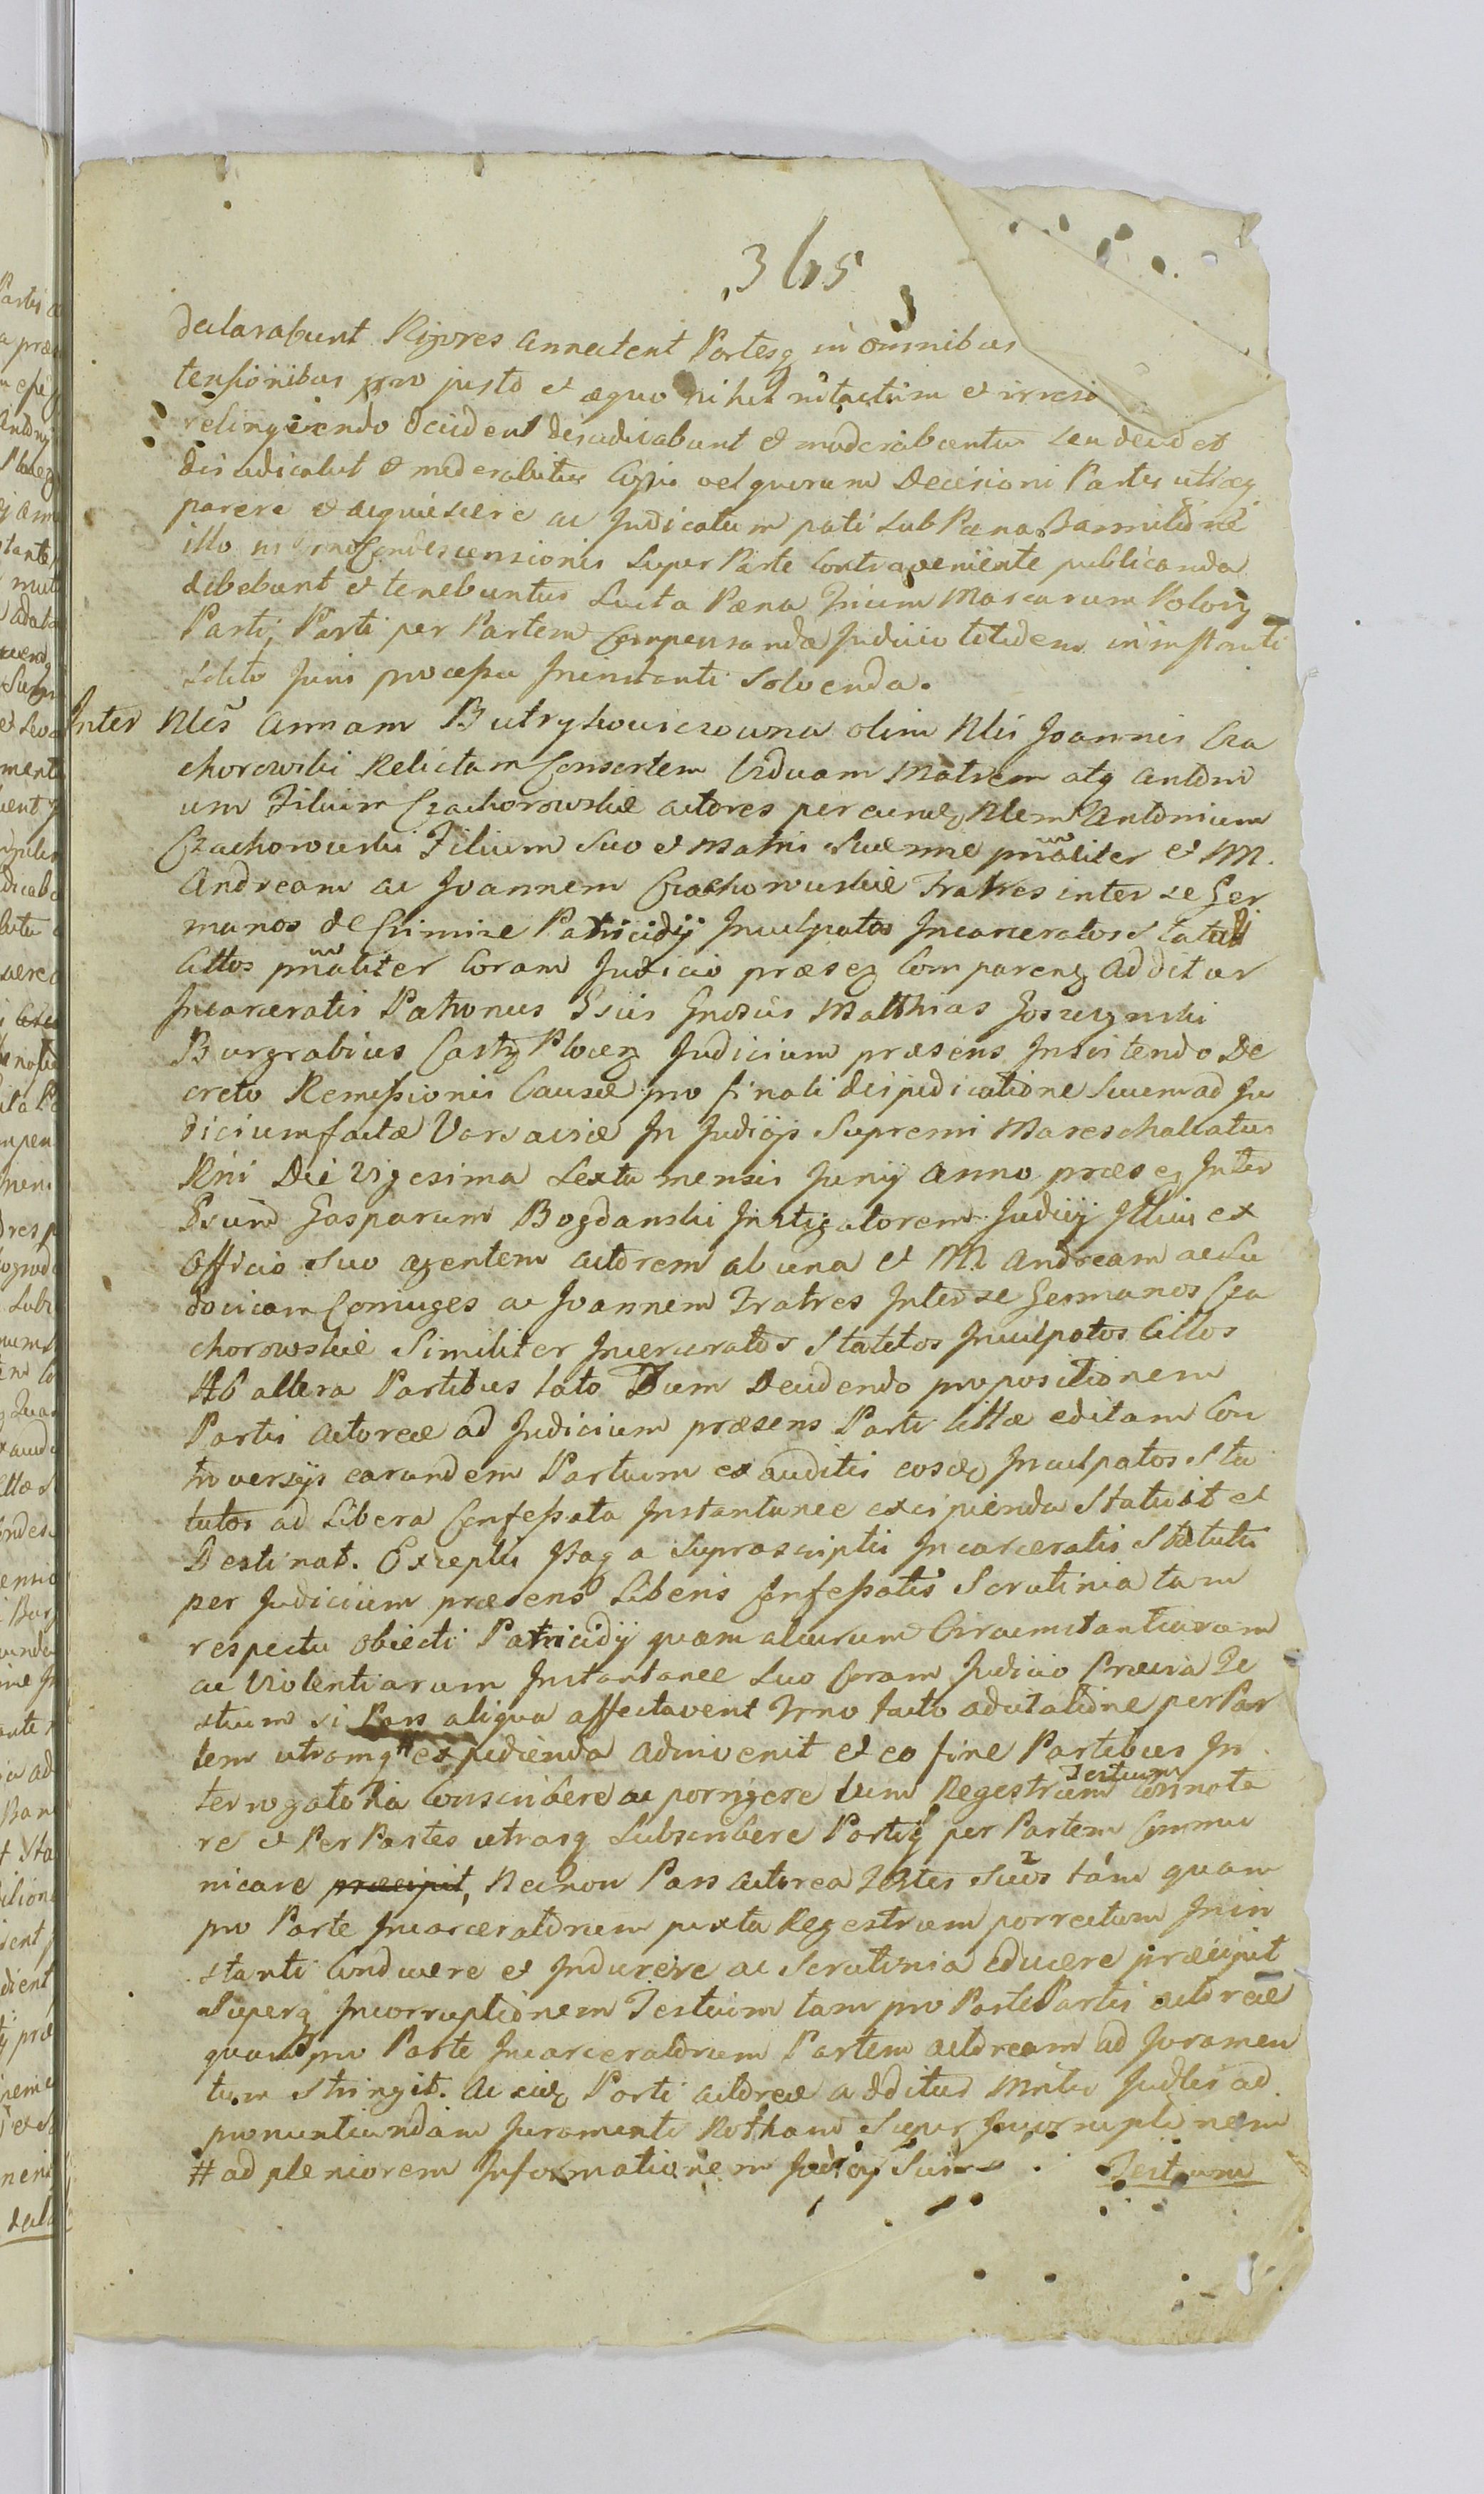 365
declarabunt Rigores annectent Partesq in omnibus
tensionibus pro justo et æquo nihil intactum et irreso
relinquendo decident dijudicabunt et moderabuntur seu decidet
dijudicabit et moderabitur Cujus vel quorum Decisioni Partes utræq
parere et acquiescere ac Judicatum pati sub Pæna Bannitione
illo condescensionis super Parte Contraveniente publicanda
debebunt et tenebuntur Lucta Pæna Trium Marcarum Polon
Parti Parti per Partem Compensanda Judicio totidem in instanti
soluto Juri processu Ininstanti solvenda.
Inter Nles Annam Butrykowiczowna olim Nlis Joannis Cza
chorowski Relictam Consortem Viduam Matrem atq Antoni
um Filium Czachorowskie actores per eundq Nlem Antonium
Czachorowski Filium suo et Matris suæ nne pnaliter et M.
Andream ac Joannem Czachorowskie Fratres inter se Ger
manos de Crimine Patricidij Inculpatos Incarceratos Statut
Cittos pnaliter Coram Judicio præseq Comparenq Additur
Incarceratis Patronus Gnosus Matthias Goszczynski
Burgrabius Castq Plocq Judicium præsens Insistendo De
creto Remissionis Causæ pro finali disjudicatione suum ad Ju
dicium factæ Varsaviæ In Judicijs Supremi Mareschallatus
Rni Die Vigesima Sexta mensis Junij Anno præseq Inter
Gasparum Bogdanski Instigatorem Judicij Illius ex
Officio suo agentem actorem ab una et M Andream ac Lu
dovicam Coniuges ac Joannem Fratres Inter se Germanos Cza
chorowskie Similiter Incarceratos Statutos Inculpatos Cittos
Ab altera Partibus lato Dum Decidendo propositionem
Partis Actoreæ ad Judicium præsens Parti Cittæ editam Con
troversijs earundem Partium ex auditis eosdq Inculpatos Sta
tutos ad Libera Confessata Instantanee excipienda Statuit et
Destinat. Exceptis Itaq a suprascriptis Incarceratis Statutis
per Judicium præsens Liberis Confessatis Scrutinia tam
respectu obiecti Patricidij quam aliarum Circumstantiarum
ac Violentiarum Instantanee suo Coram Judicio Prævia Te
stium si Pars aliqua affectaverit Irno facto adcitatione per Par
tem utramq # expedienda adinvenit et eo fine Partibus In
terrogatoria Conscribere ac porrigere tum Regestrum Testium Connota
re et Per Partes utrasq subscribere Partiq per Partem Commu
nicare præcipit, Necnon Pars actorea Testes suos tam quam
pro Parte Incarceratorum juxta Regestrum porrectum Inin
stanti Conducere et Inducere ac Scrutinia educere præcipit
Superq Incorruptionem Testium tam pro Parte Partis actoreæ
quam pro Parte Incarceratorum Partem actoream ad Juramen
tum stringit. Ac eidq Parti actoreæ additur Mnter Judlis ad
pronuntiandam Juramenti Rotham Super Incorruptionem
# ad pleniorem Informationem Judicij Sui Testium